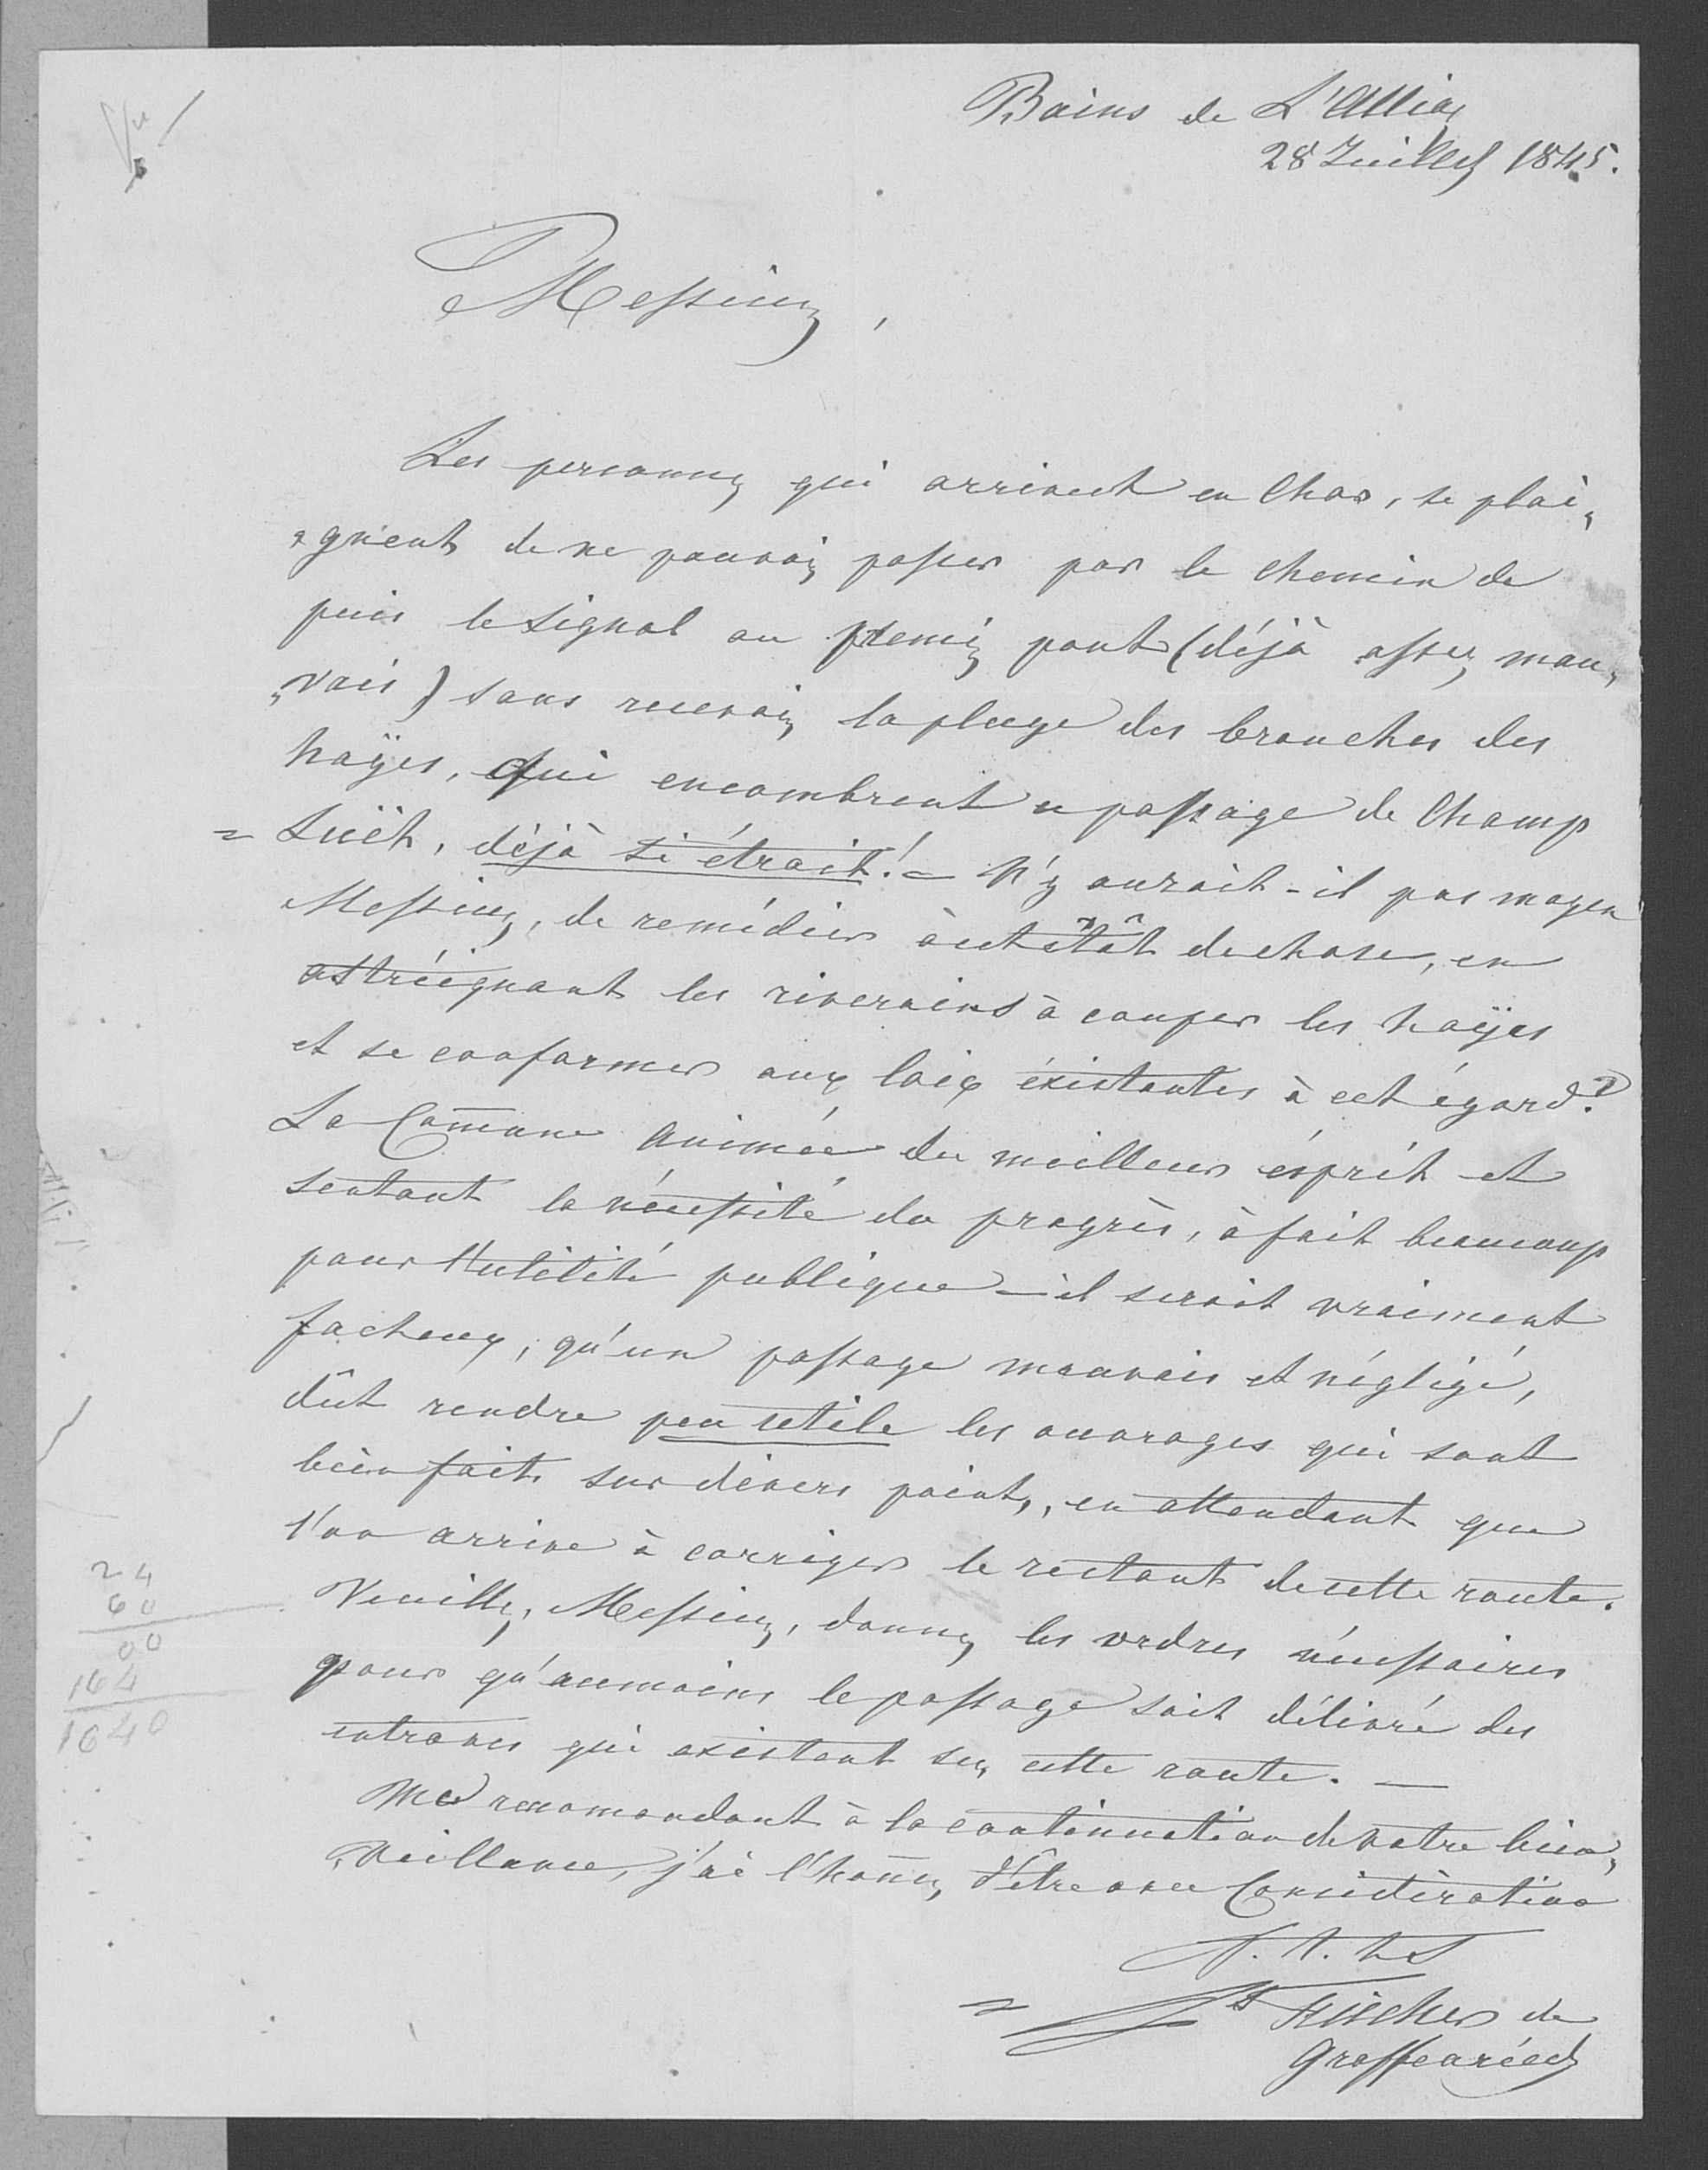 Vu
Bains de L'Alliaz
28 Juillet 1845.
Messieurs,
Les personnes qui arrivent en Char, se plai„
„gnent de ne pouvoir passer par le chemin de
puis le signal au premier pont (déjà assez mau„
„vais) sans recevoir la pluye des branches des
hayes, qui encombrent ce passage de Champ
= Suët, déjà si étroit! — N'y aurait-il pas moyen
Messieurs, de remédier à cet êtât de chose, en
astréignant les riverains à couper les hayes
et se conformer aux loix éxistantes à cet égard?
La Comune animée du meilleur ésprit et
sentant la nécessité du progrès, à fait beaucoup
pour l'utilité publique — il serait vraiment
facheux, qu'un passage mauvais et négligé,
dût rendre peu utile les ouvrages qui sont
bien faits sur divers points, en attendant que
l'on arrive à corriger le restant de cette route.
Veuillez, Messieurs, donner les ordres nécessaires
pour qu'aumoins le passage soit délivré des
entraves qui existent sur cette route. —
Me recomandant à la continuation de votre bien„
„veillance, j'ai l'honneur d'être avec Considération
= Fischer de
24
60
00
164
1640